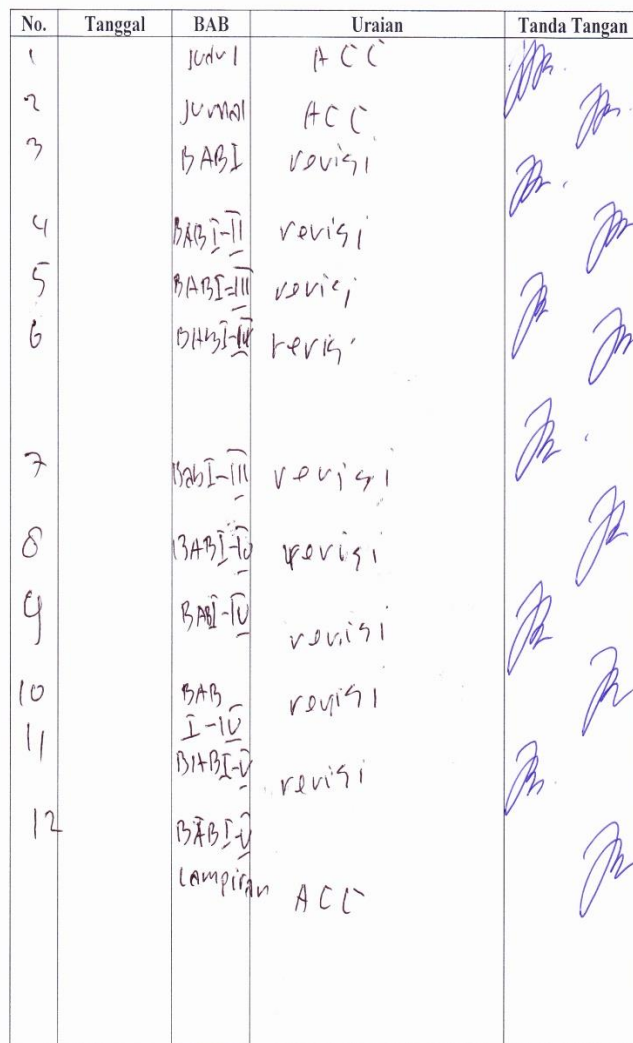 No. Tanggal BAB Uraian Tanda Tangan
1 Judul ACC
2 Jurnal ACC
3 BAB I revisi
4 BAB I-II revisi
5 BAB I-III revisi
6 BAB I-IV revisi
7 Bab I-III revisi
8 BAB I-IV revisi
9 BAB I-IV revisi
10 BAB revisi
I-IV
11 BAB I-V revisi
12 BAB I-V
Lampiran ACC